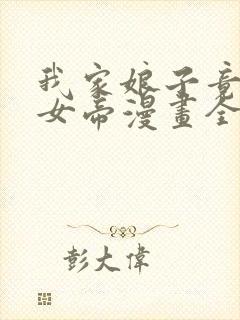 我家娘子竟
女帝漫畫全
彭大偉